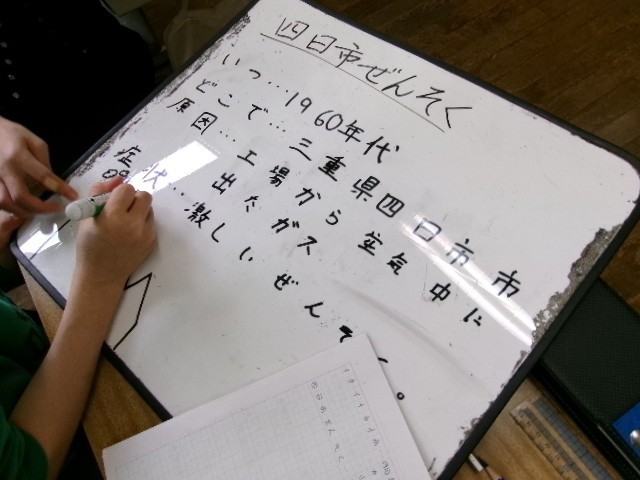 四日市ぜんそく
いつ…1960年代
どこで…三重県四日市市
原因…工場から空気中に
出たガス
症状…激しいぜんそく。